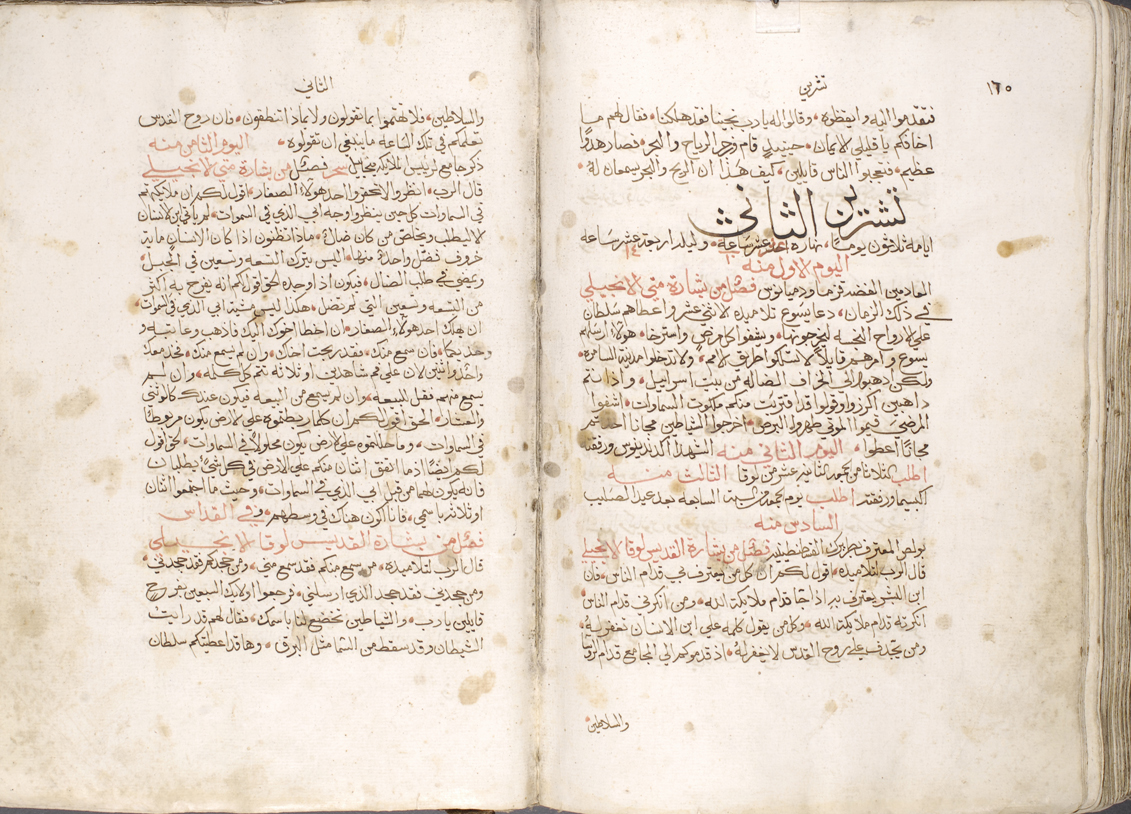 ١٦٥
تشرين
فتقدموا اليه وايقظوه وقالوا له يا رب نجينا فقد هلكنا فقال لهم ما
اخافكم يا قليلي الايمان حينيذ قام وزجر الرياح والبحر فصار هدوا
عظيم فتعجبوا الناس قايلين كيف هذا ان الريح والبحر يسمعان له
تشرين الثاني
ايامه ثلاثون يوما نهاره عشر ساعة وليله اربعة عشر ساعه
١٠ ١٤
اليوم الاول منه
العادمين الفضه قزما ودميانوس فصل من بشارة متي الانجيلي
في ذلك الزمان دعا يسوع تلاميذه الاثني عشر واعطاهم سلطان
علي الارواح النجسه ليخرجوها ويشفوا كل مرض واسترخا هولاء ارسلهم
يسوع وامرهم قايلاً لا تسلكوا طريق الامم ولا تدخلوا مدينة السامره
ولكن اذهبوا الي الخراف الضاله من بيت اسراييل واذا انتم
ذاهبين اكرزوا وقولوا قد اقتربت منكم ملكوت السماوات اشفوا
المرضي قيموا الموتي طهروا البرص اخرجوا الشياطين مجانا اخذتم
مجاناً اعطوا اليوم الثاني منه الشهدا اكندينوس ورفقته
اطلب الثلاثا من الجمعه الثانيه عشر من لوقا الثالث منه
اكبسيما ورفقته اطلب يوم الجمعه من السابعه بعد عيد الصليب
السادس منه
بولص المعترف بطريرك القسطنطينيه فصل من بشارة القديس لوقا الانجيلي
قال الرب لتلاميذه اقول لكم ان كل من يعترف بي قدام الناس فان
ابن البشر يعترف به اذا جا قدام ملايكة الله ومن انكرني قدام الناس
انكرته قدام ملايكة الله وكل من يقول كلمه علي ابن الانسان تغفر له
ومن يجدف علي روح القدس لا يغفر له اذ قدموكم الي المجامع قدام الروسا
والسلاطين
الثاني
والسلاطين فلا تهتموا بما تقولون ولا بماذا تنطقون فان روح القدس
تعلمكم في تلك الساعة ما ينبغي ان تقولوه اليوم الثامن منه
ذكر جامع لرييس الملايكه مخاييل سحر فصل من بشارة متي الانجيلي
قال الرب انظروا لا تحقروا احد هولاء الصغار اقول لكم ان ملايكتهم
في السماوات كل حين ينظروا وجه ابي الذي في السموات لم ياتي ابن الانسان
الا ليطلب ويخلص من كان ضالً ماذا تظنون اذا كان الانسان ماية
خروف فضل واحدة منها اليس يترك التسعه وتسعين في الجبل
ويمضي في طلب الضال فيكون اذا وجده الحق اقول لكم انه يفرح به اكثر
من التسعه وتسعين التي لم تضل هكذا ليس مشية ابي الذي في السموات
ان يهلك احد هولاء الصغار ان اخطا اخوك اليك فاذهب وعاتبه و
وحدكما فان سمع منك فقد ربحت اخاك وان لم يسمع منك فخذ معك
واحد واثنين لان علي فم شاهدين او ثلاثه تتم كل كلمه وان لم
يسمع منهم فقل للبيعه وان لم يسمع من البيعه فيكون عندك كالوثني
والعشار الحق اقول لكم ان كلما ربطتموه علي الارض يكون مربوطاً
في السماوات وما حللتموه علي الارض يكون محلولاً في السماوات الحق اقول
لكم ايضاً اذا ما اتفق اثنان منكم علي الارض في كل شي يطلبان
فانه يكون لهما من قبل ابي الذي في السماوات وحيث ما اجتمعوا اثنان
او ثلاثه باسمي فانا اكون هناك في وسطهم وفي القداس
فصل من بشارة القديس لوقا الانجيلي
قال الرب لتلاميذه من سمع منكم فقد سمع مني ومن جحدكم فقد جحدني
ومن جحدني فقد جحد الذي ارسلني فرجعوا اوليك السبعين بفرح
قايلين يا رب والشياطين تخضع لنا باسمك فقال لهم قد رايت
الشيطان وقد سقط من السما مثل البرق وها قد اعطيتكم سلطان